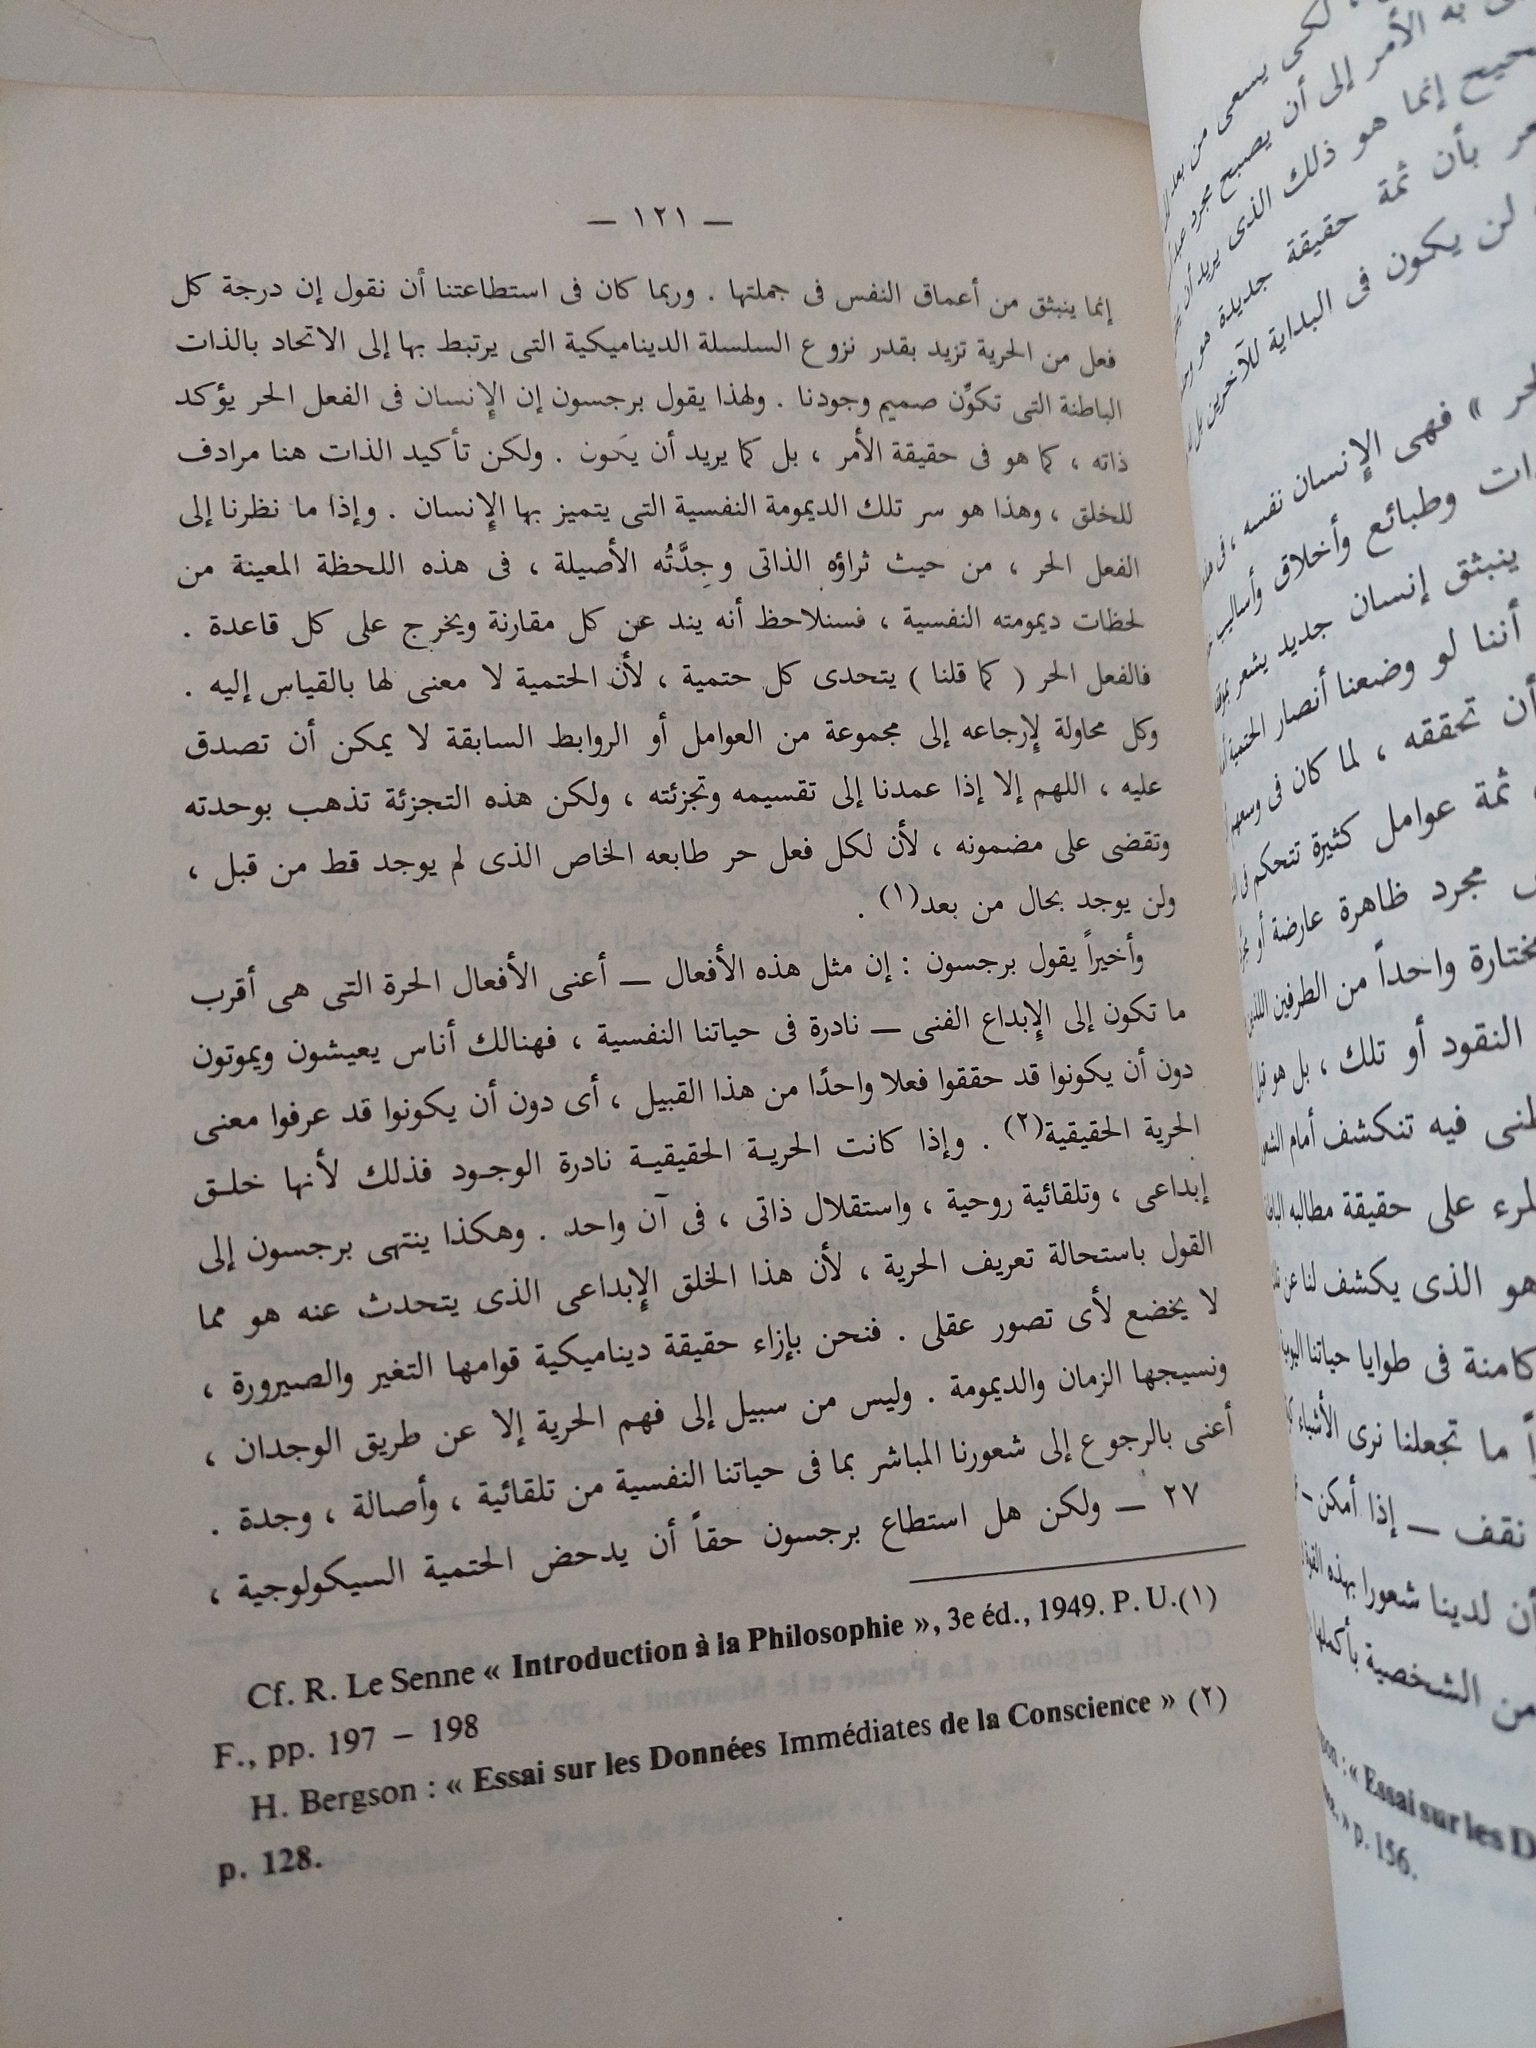 — ١٢١ —
إنما ينبثق من أعماق النفس فى جملتها . وربما كان فى استطاعتنا أن نقول إن درجة كل
فعل من الحرية تزيد بقدر نزوع السلسلة الديناميكية التى يرتبط بها إلى الاتحاد بالذات
الباطنة التى تكوِّن صميم وجودنا . ولهذا يقول برجسون إن الإنسان فى الفعل الحر يؤكد
ذاته ، كما هو فى حقيقة الأمر ، بل كما يريد أن يكون . ولكن تأكيد الذات هنا مرادف
للخلق ، وهذا هو سر تلك الديمومة النفسية التى يتميز بها الإنسان . وإذا ما نظرنا إلى
الفعل الحر ، من حيث ثراؤه الذاتى وجِدَّتُه الأصيلة ، فى هذه اللحظة المعينة من
لحظات ديمومته النفسية ، فسنلاحظ أنه يند عن كل مقارنة ويخرج على كل قاعدة .
فالفعل الحر ( كما قلنا ) يتحدى كل حتمية ، لأن الحتمية لا معنى لها بالقياس إليه .
وكل محاولة لإرجاعه إلى مجموعة من العوامل أو الروابط السابقة لا يمكن أن تصدق
عليه ، اللهم إلا إذا عمدنا إلى تقسيمه وتجزئته ، ولكن هذه التجزئة تذهب بوحدته
وتقضى على مضمونه ، لأن لكل فعل حر طابعه الخاص الذى لم يوجد قط من قبل ،
ولن يوجد بحال من بعد(١) .
وأخيراً يقول برجسون : إن مثل هذه الأفعال — أعنى الأفعال الحرة التى هى أقرب
ما تكون إلى الإبداع الفنى — نادرة فى حياتنا النفسية ، فهنالك أناس يعيشون ويموتون
دون أن يكونوا قد حققوا فعلا واحدًا من هذا القبيل ، أى دون أن يكونوا قد عرفوا معنى
الحرية الحقيقية(٢) . وإذا كانت الحرية الحقيقية نادرة الوجود فذلك لأنها خلق
إبداعى ، وتلقائية روحية ، واستقلال ذاتى ، فى آن واحد . وهكذا ينتهى برجسون إلى
القول باستحالة تعريف الحرية ، لأن هذا الخلق الإبداعى الذى يتحدث عنه هو مما
لا يخضع لأى تصور عقلى . فنحن بإزاء حقيقة ديناميكية قوامها التغير والصيرورة ،
ونسيجها الزمان والديمومة . وليس من سبيل إلى فهم الحرية إلا عن طريق الوجدان ،
أعنى بالرجوع إلى شعورنا المباشر بما فى حياتنا النفسية من تلقائية ، وأصالة ، وجدة .
٢٧ — ولكن هل استطاع برجسون حقاً أن يدحض الحتمية السيكولوجية ،
Cf. R. Le Senne « Introduction à la Philosophie », 3e éd., 1949. P. U.(١)
F., pp. 197 – 198
H. Bergson : « Essai sur les Données Immédiates de la Conscience » (٢)
p. 128.
لكى يسعى من بعد
به الأمر إلى أن يصبح مجرد
إنما هو ذلك الذى يريد أن
بأن ثمة حقيقة جديدة هو
لن يكون فى البداية للآخرين بل
» فهى الإنسان نفسه ، فى
وطبائع وأخلاق وأساليب
ينبثق إنسان جديد يشعر
أننا لو وضعنا أنصار الحتمية
أن تحققه ، لما كان فى وسعهم
ثمة عوامل كثيرة تتحكم فى
مجرد ظاهرة عارضة أو
واحداً من الطرفين
النقود أو تلك ، بل هو
فيه تنكشف أمام
على حقيقة مطالبه
هو الذى يكشف لنا عن
كامنة فى طوايا حياتنا
ما تجعلنا نرى الأشياء
نقف — إذا أمكن —
أن لدينا شعورا بهذه
من الشخصية بأكملها
: « Essai sur les
» p. 156.